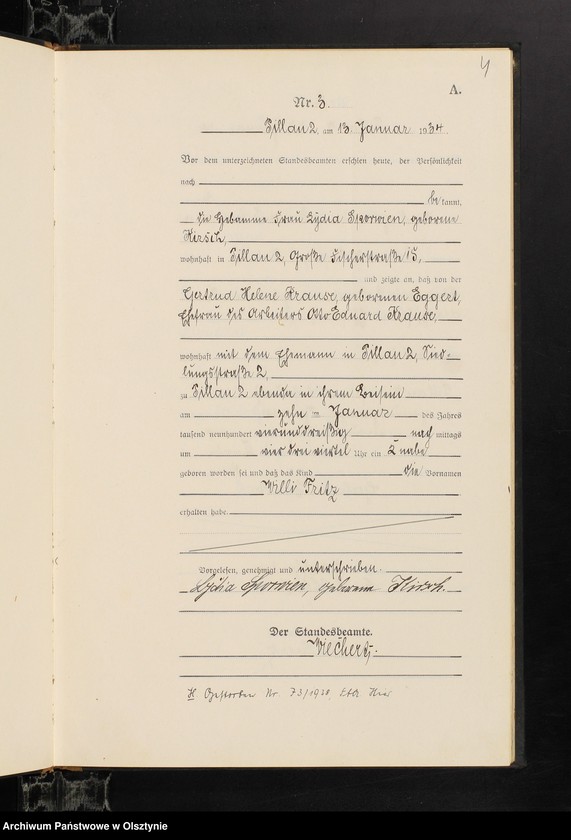 4
A.
Nr. 3.
Pillau 2, am 13. Januar 1934
Vor dem unterzeichneten Standesbeamten erschien heute, der Persönlichkeit
nach
be kannt,
die Hebamme Frau Lydia Sporwien, geborene
Hirsch,
wohnhaft in Pillau 2, Große Fischerstraße 15,
und zeigte an, daß von der
Gertrud Helene Krause, geborenen Eggert,
Ehefrau des Arbeiters Otto Eduard Krause,
wohnhaft mit dem Ehemann in Pillau 2, Sied-
lungsstraße 2,
zu Pillau 2 ebenda in ihrem Beisein
am zehn ten Januar des Jahres
tausend neunhundert vierunddreißig nach mittags
um vier drei viertel Uhr ein Knabe
geboren worden sei und daß das Kind die Vornamen
Willi Fritz
erhalten habe.
Vorgelesen, genehmigt und unterschrieben.
Lydia Sporwien, geborene Hirsch.
Der Standesbeamte.
Gestorben Nr 73/1938,
Archiwum Państwowe w Olsztynie